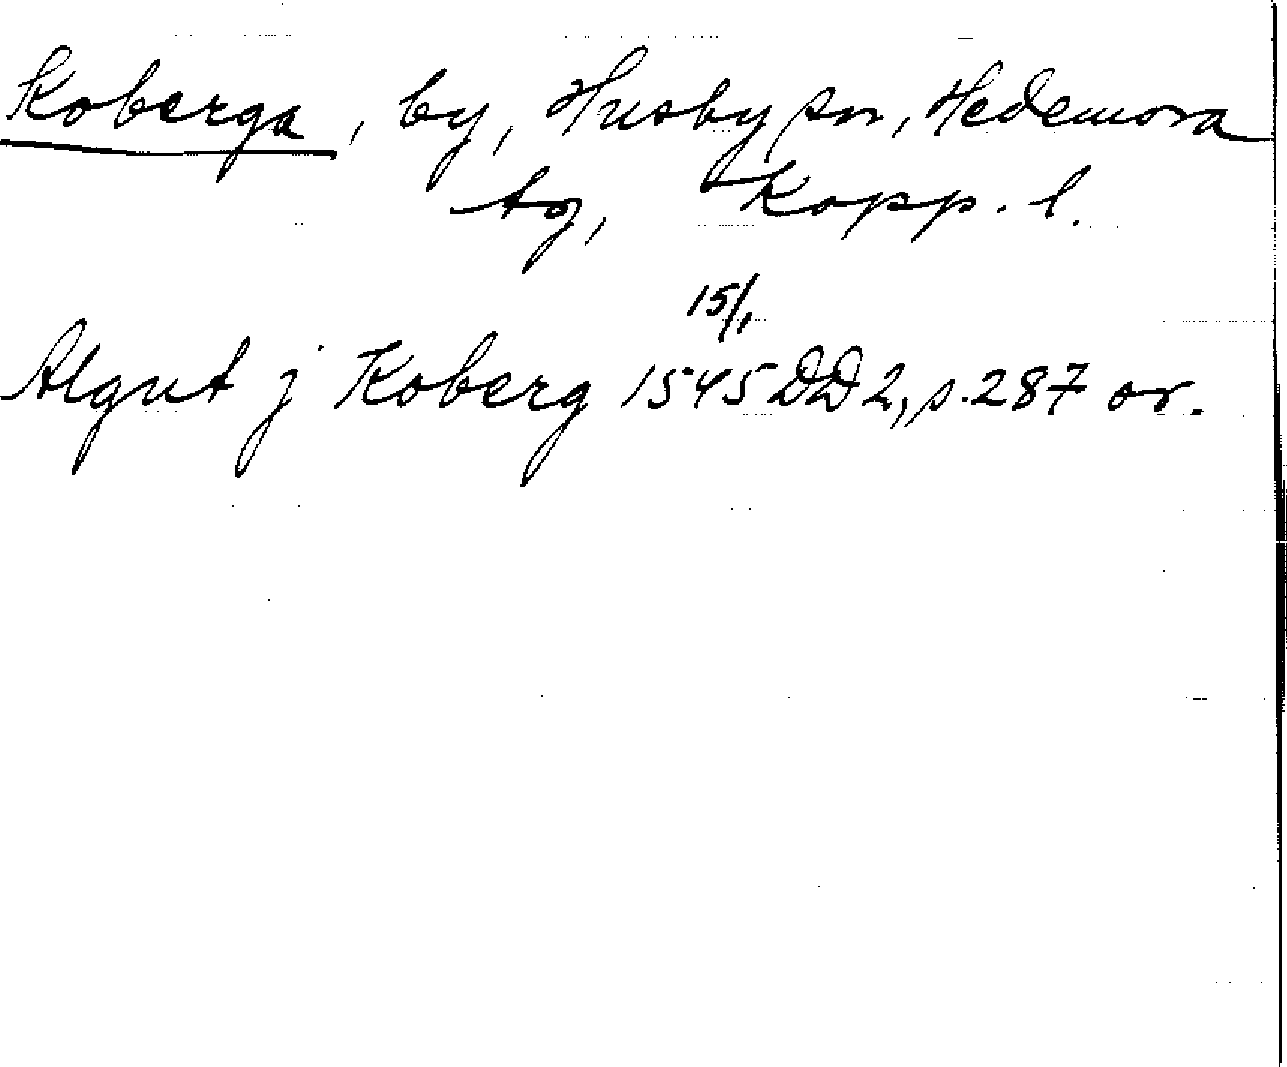 Koberga, by, Husby sn, Hedemora
tg, Kopp. l.
15/1
Algut j Koberg 1545 DD 2, s. 287 or.